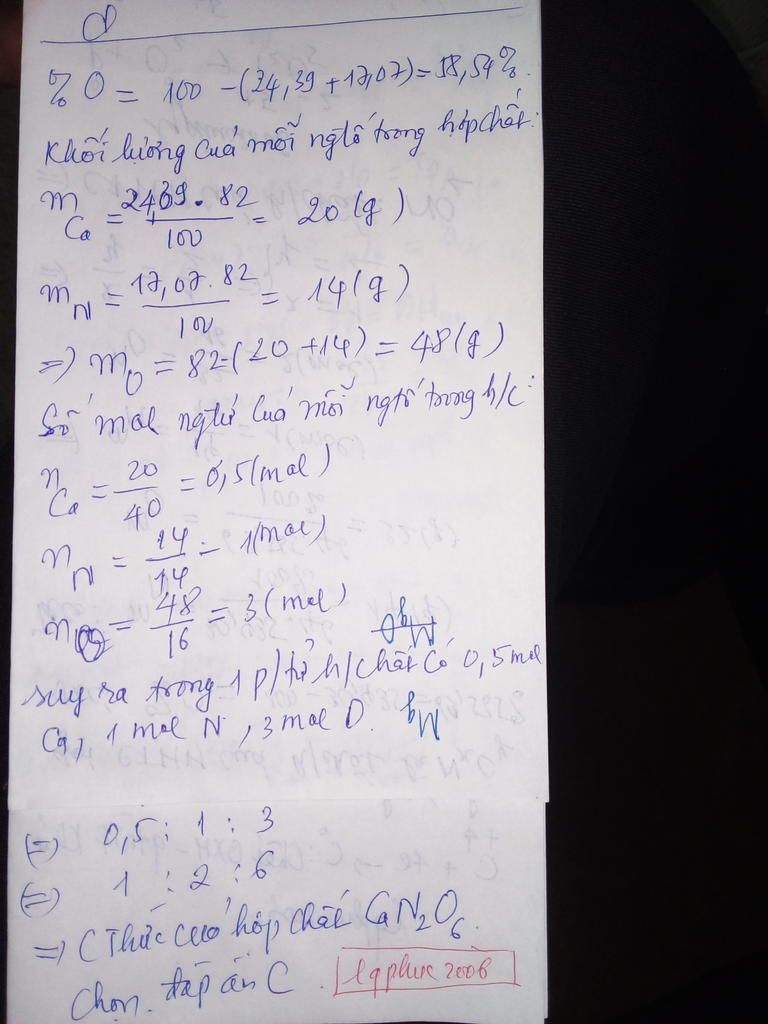 % O = 100 - (24,39 + 17,07) = 58,54%.
Khối lượng của mỗi ngtố trong hợp chất:
m Ca = 24,39 . 82 / 100 = 20 (g)
m N = 17,07 . 82 / 100 = 14 (g)
=> m O = 82 - (20 + 14) = 48 (g)
Số mol ngtử của mỗi ngtố trong h/c:
n Ca = 20 / 40 = 0,5 (mol)
n N = 14 / 14 = 1 (mol)
n O = 48 / 16 = 3 (mol)
MgO
suy ra trong 1 p/tử h/chất có 0,5 mol
Ca, 1 mol N, 3 mol O. Mg
(=) 0,5 : 1 : 3
(=) 1 : 2 : 6
=> CThức của hợp chất CaN2O6.
Chọn đáp án C. lqphuc2006